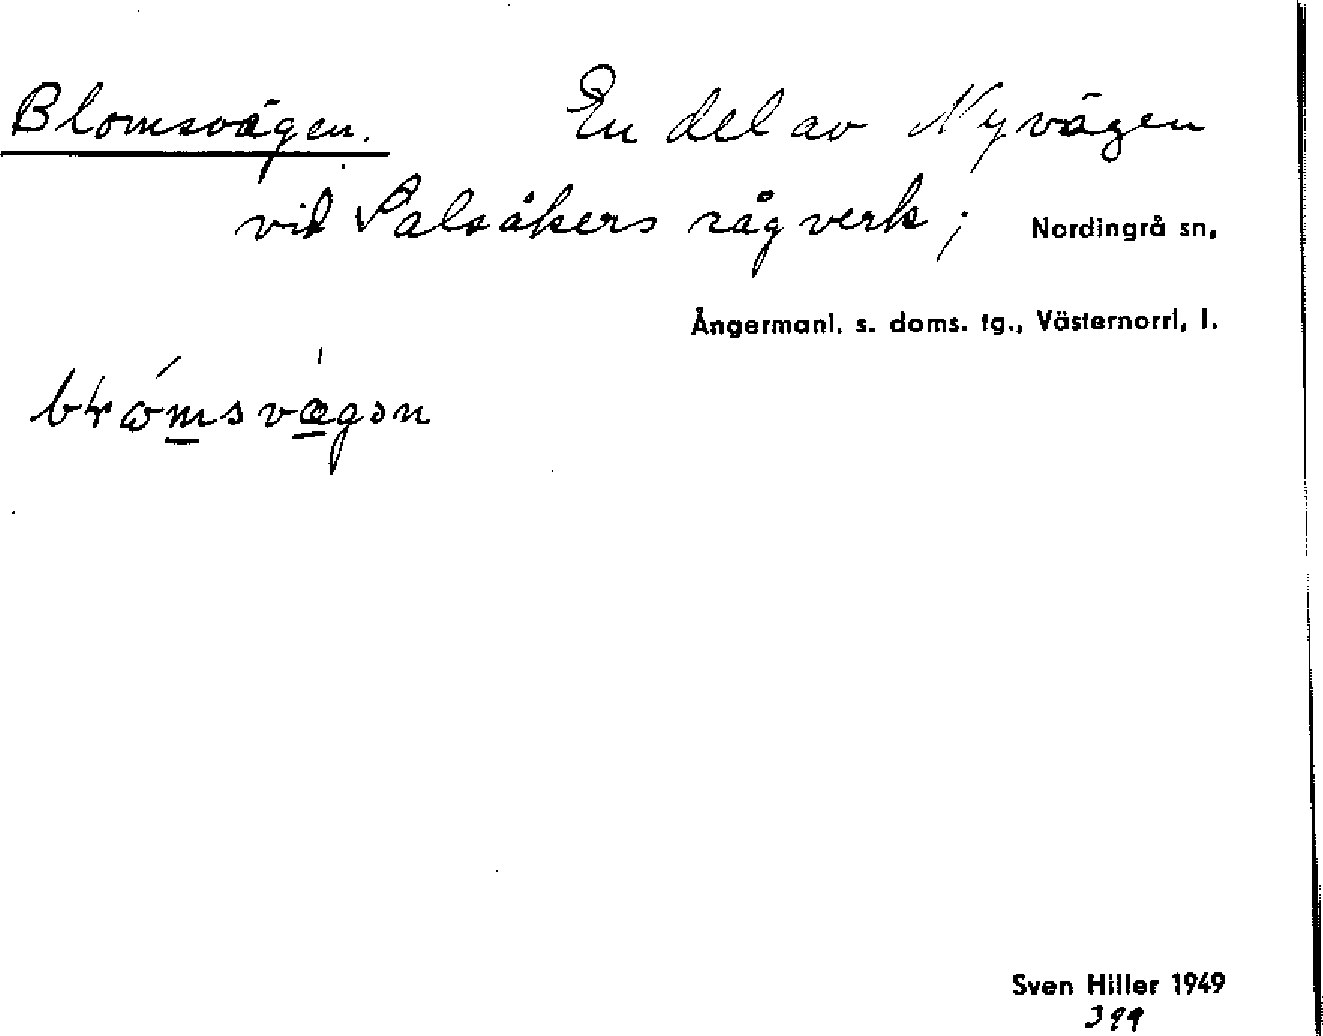 Blomsvägen. En del av Nyvägen
vid Salsåkers sågverk; Nordingrå sn,
Ångermanl. s. doms. tg., Västernorrl, l.
Sven Hiller 1949
399